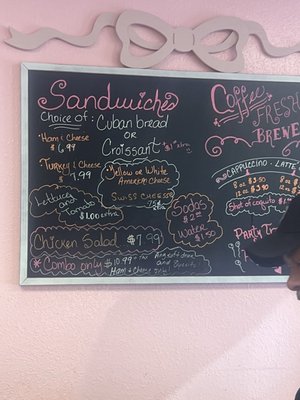 Sandwiches
Choice of:
Cuban bread
OR
Croissant
$1 extra
Ham & Cheese
$6.99
Turkey & Cheese
7.99
Yellow or White
American Cheese
Swiss Cheese
Lettuce
and
Tomato
$1.00 extra
Sodas
$2.00
Water
$1.50
Chicken Salad $7.99
* Combo only $10.99 + tax
Any soft drink
and
Ham & Cheese only!
Coffee
FRESH
BREWE
CAPPUCCINO - LATTE
8 oz $3.50
12 oz $3.90
8 oz
12 oz
Shot of coquito $1
PARTY T